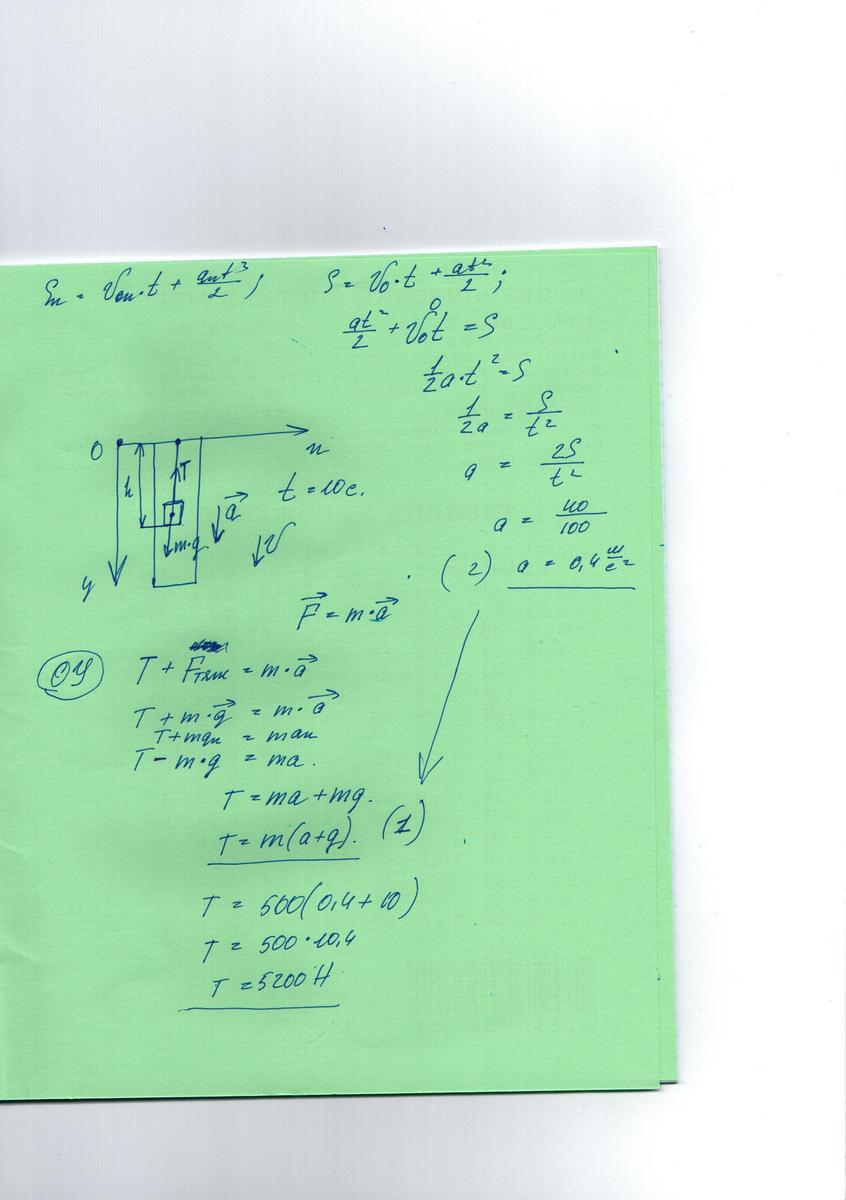 Sₙ = V₀ₙ·t + aₙt²/2 ; S = V₀·t + at²/2 ;
at²/2 + V₀t = S
0
1/2a·t² = S
1/2a = S/t²
a = 2S/t²
a = 40/100
(2) a = 0,4 м/с²
0
T
h
t = 10с.
a⃗
m·g
V
y
F⃗ = m·a⃗
ОУ
T + Fтяж = m·a⃗
T + m·g⃗ = m·a⃗
T + mgₙ = maₙ
T - m·g = ma.
T = ma + mg.
T = m(a+g). (1)
T = 500(0,4 + 10)
T = 500·10,4
T = 5200 Н